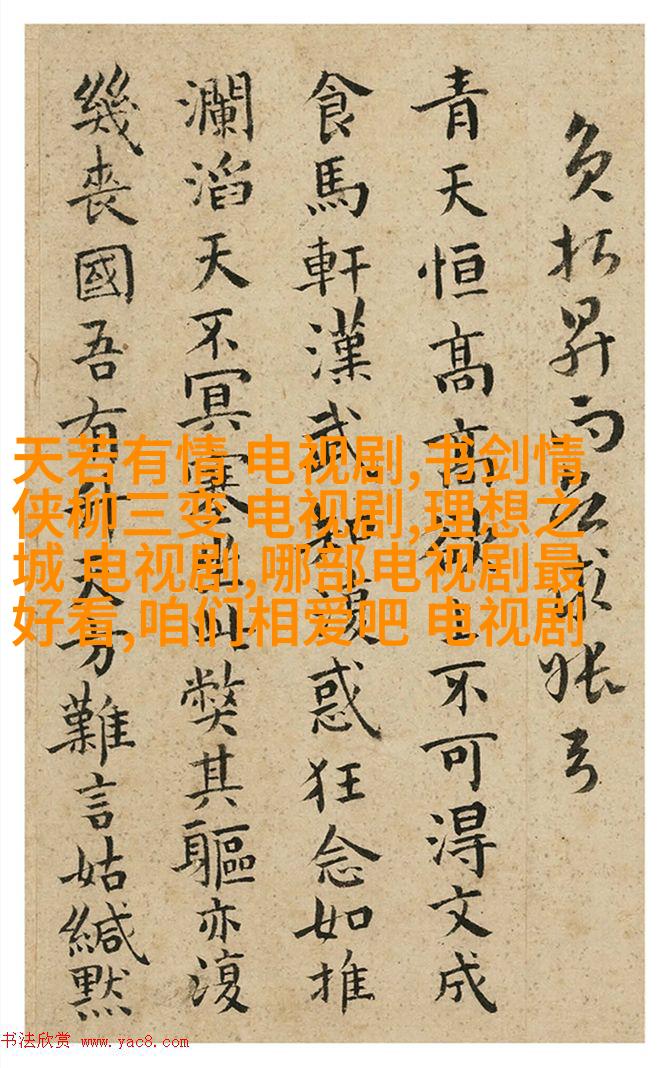 昇而
青天恒高高不可得文成
食馬軒漢武復惑狂念如推
瀾滔天不冥此弊其軀亦復
幾喪國吾有方難言姑緘默
天若有情 电视剧,书剑情
侠柳三变 电视剧,理想之
城 电视剧,哪部电视剧最
好看,咱们相爱吧 电视剧
书法欣赏 www.yac8.com